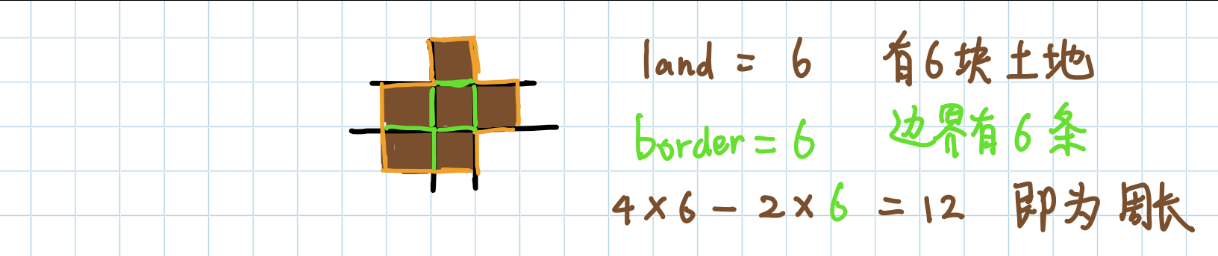 land = 6 有6块土地
border = 6 边界有6条
4×6-2×6 = 12 即为周长